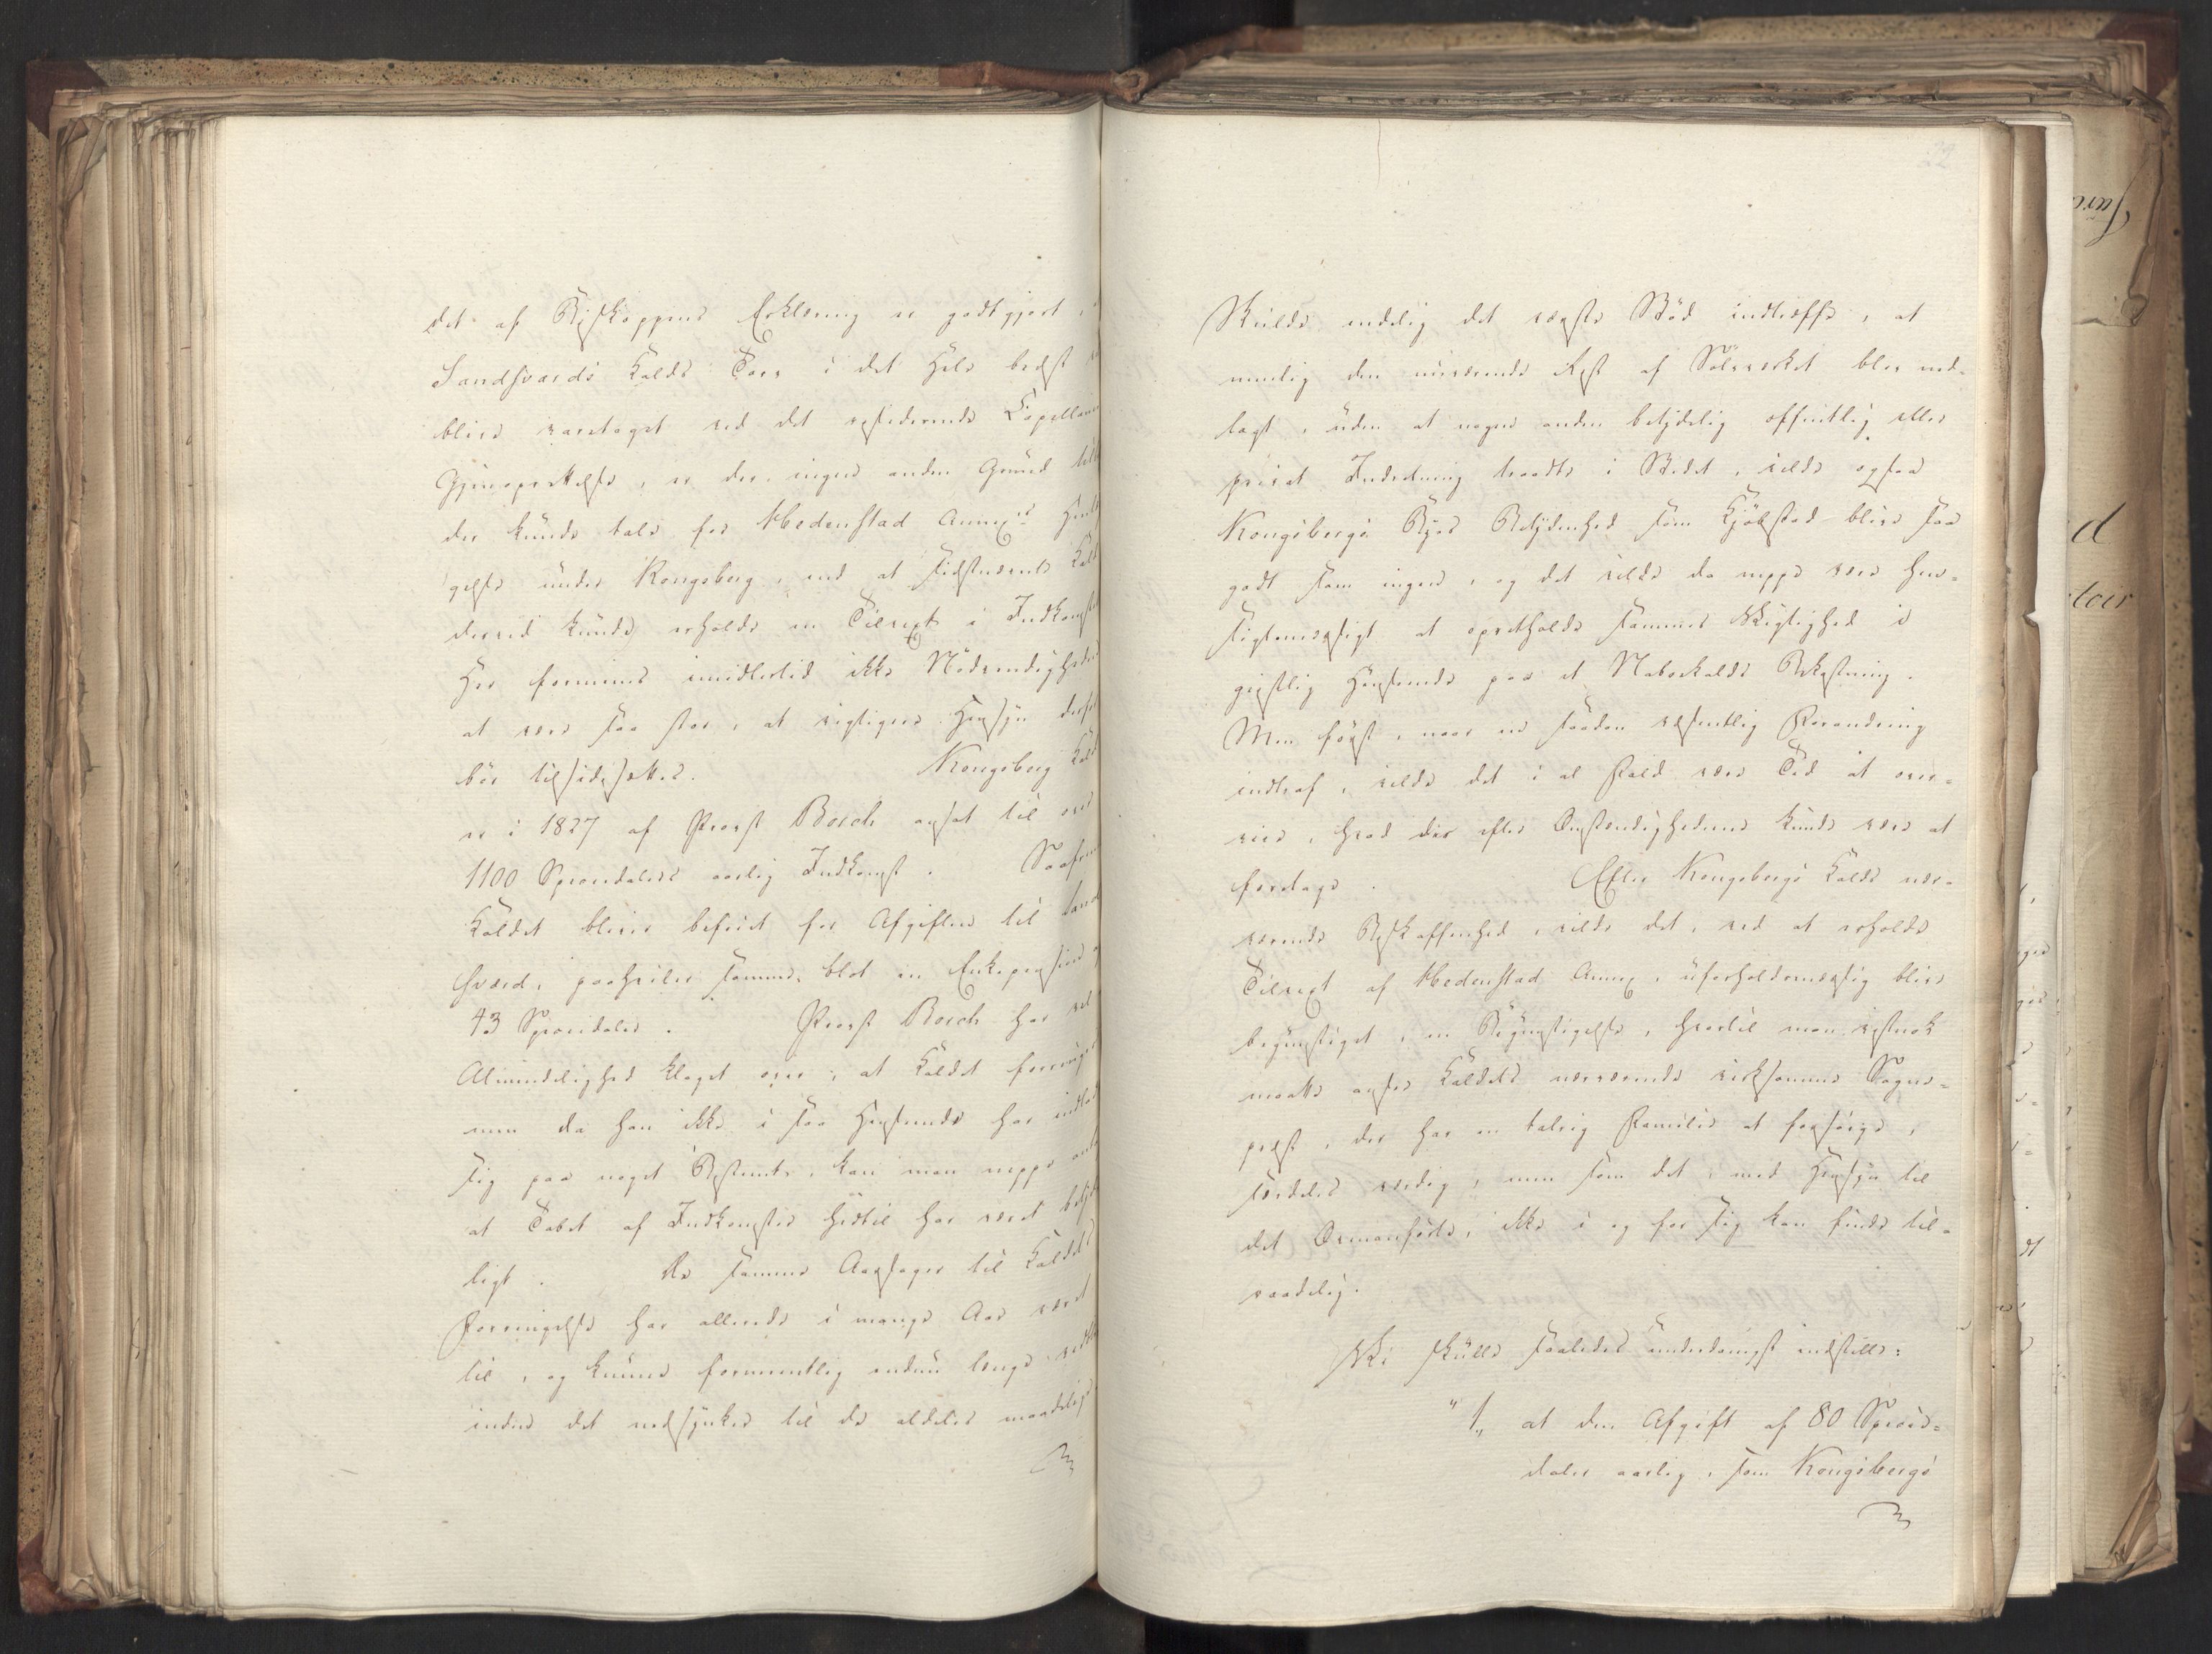 det af Biskoppens Erklæring er godtgjort,
Sandsværds Kalds Tarv i det Hele bedst
blive varetaget ved det residerende Capellanie
Gjenoprettelse, er der ingen anden Grund
der kunde tale for Hedenstad Annexes Henlæ
gelse under Kongsberg, end at sidstnævnte Kald
derved kunde erholde en Tilvext i Indkomst
Her formenes imidlertid ikke Nødvendigheden
at være saa stor, at vigtigere Hensyn derfor
bør tilsidesættes. Kongsberg Kald
er i 1827 af Provst Bosch ansat til over
1100 Speciedalers aarlig Indkomst. Saafremt
Kaldet bliver befriet for Afgiften til Sand
sværd, paahviler samme blot en Enkepension
43 Speciedaler. Provst Bosch har vel
Almindelighed klaget over, at Kaldet forringes
men da han ikke i saa Henseende har indladt
sig paa noget Bestemt, kan man neppe
at Tabet af Indkomster hidtil har været betyde
ligt. De samme Aarsager til Kaldets
Forringelse har allerede i mange Aar været
til, og kunne formeentlig endnu længe
inden det nedsynker til de aldeles maadelige
22
Skulde endelig det værste Stød indtræffe, at
nemlig den nuværende Rest af Sølvværket blev ned-
lagt, uden at nogen anden betydelig offentlig eller
privat Indretning traadte i Stedet, vilde ogsaa
Kongsbergs Byes Betydenhed som Kjøbstad blive saa
godt som ingen, og det vilde da neppe være hen-
sigtsmæssigt at opretholde sammes Vigtighed i
geistlig Henseende paa et Nabokalds Bekostning.
Men først, naar en saadan væsentlig Forandring
indtraf, vilde det i al Fald være Tid at over-
veie, hvad der efter Omstændighederne kunde være at
foretage. Efter Kongsbergs Kalds nær-
værende Beskaffenhed, vilde det, ved at erholde
Tilvext af Hedenstad Annex, uforholdsmæssig blive
begunstiget, en Begunstigelse, hvortil man vistnok
maatte ansee Kaldets nærværende virksomme Sogne-
præst, der har en talrig Familie at forsørge,
særdeles værdig, men som det, med Hensyn til
det Ovenanførte, ikke i og for sig kan findes til-
raadelig.
Vi skulle saaledes underdanigst indstille:
"1, at den Afgift af 80 Specie-
daler aarlig, som Kongsbergs